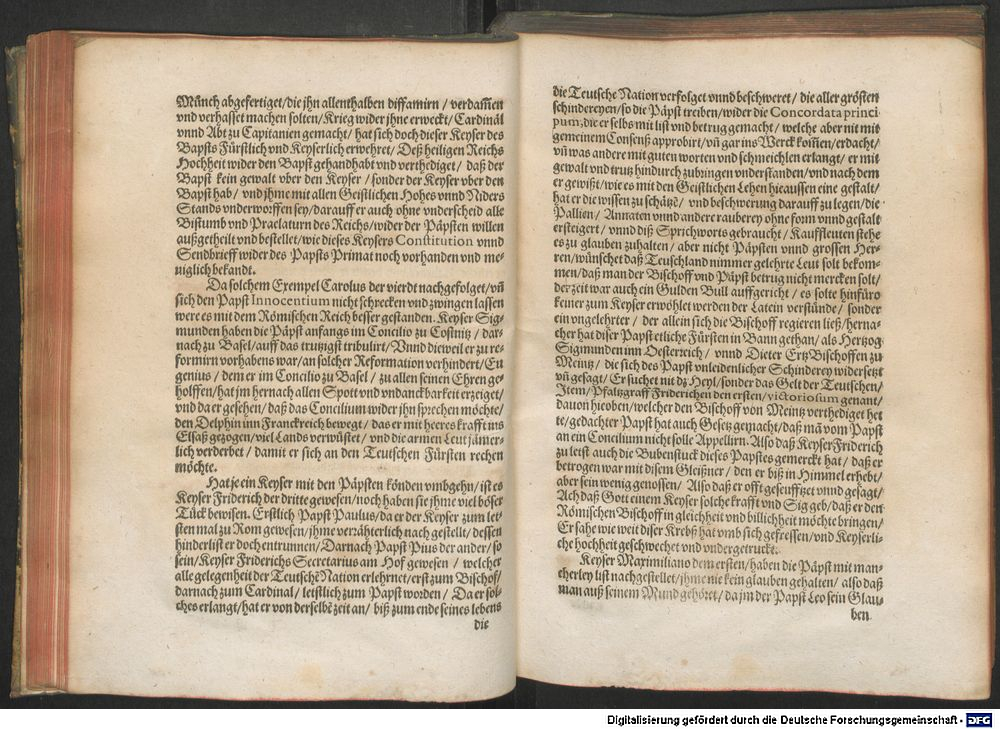 Münch abgefertiget/die jhn allenthalben diffamirn / verdam̃en
vnd verhasset machen solten/Krieg wider jhne erweckt/Cardinäl
vnnd Abt zu Capitanien gemacht/ hat sich doch dieser Keyser des
Bapsts Fürstlich vnd Keyserlich erwehret/ Deß heiligen Reichs
Hochheit wider den Bapst gehandhabt vnd verthediget/ daß der
Bapst kein gewalt vber den Keyser /sonder der Keyser vber den
Bapst hab/ vnd jhme mit allen Geistlichen Hohes vnnd Niders
Stands vnderworffen sey/darauff er auch ohne vnderscheid alle
Bistumb vnd Praelaturn des Reichs/wider der Päpsten willen
außgetheilt vnd bestellet/wie dieses Keysers Constitution vnnd
Sendbrieff wider des Papsts Primat noch vorhanden vnd me-
niglich bekandt.
Da solchem Exempel Carolus der vierdt nachgefolget/vñ
sich den Papst Innocentium nicht schrecken vnd zwingen lassen
were es mit dem Römischen Reich besser gestanden. Keyser Sig-
munden haben die Päpst anfangs im Concilio zu Costnitz / dar-
nach zu Basel/auff das trutzigst tribulirt/ Vnnd dieweil er zu re-
formirn vorhabens war/an solcher Reformation verhindert/Eu
genius / dem er im Concilio zu Basel / zu allen seinen Ehren ge-
holffen/hat jm hernach allen Spott vnd vndanckbarkeit erzeiget/
vnd da er gesehen/ daß das Concilium wider jhn sprechen möchte/
den Delphin inn Franckreich bewegt / das er mit heeres krafft ins
Elsaß gezogen/viel Lands verwüstet/ vnd die armen Leut jämer-
lich verderbet / damit er sich an den Teutschen Fürsten rechen
möchte.
Hat je ein Keyser mit den Päpsten könden vmbgehn/ist es
Keyser Friderich der dritte gewesen/noch haben sie jhme viel böser
Tück bewisen. Erstlich Papst Paulus/da er der Keyser zum letz-
sten mal zu Rom gewesen/jhme verrähterlich nach gestellt/dessen
hinderlist er doch entrunnen/ Darnach Papst Pius der ander/so
sein/Keyser Friderichs Secretarius am Hof gewesen / welcher
alle gelegenheit der Teutschẽ Nation erlehrnet/erst zum Bischof/
darnach zum Cardinal / letstlich zum Papst worden / Da er sol-
ches erlangt/hat er von derselbẽ zeit an/ biß zum ende seines lebens
die
die Teutsche Nation verfolget vnnd beschweret / die aller grösten
schindereyen/so die Päpst treiben/wider die Concordata princi
pum,die er selbs mit list vnd betrug gemacht/ welche aber nit mit
gemeinem Consenß approbirt/vñ gar ins Werck kom̃en/erdacht/
vñ was andere mit guten worten vnd schmeichlen erlangt/ er mit
gewalt vnd trutz hindurch zubringen vnderstanden/vnd nach dem
er gewißt/wie es mit den Geistlichen Lehen hieaussen eine gestalt/
hat er die wissen zu schätzẽ/ vnd beschwerung darauff zu legen/die
Pallien/ Annaten vnnd andere rauberey ohne form vnnd gestalt
ersteigert/ vnnd diß Sprichworts gebraucht/ Kauffleuten stehe
es zu glauben zuhalten/ aber nicht Päpsten vnnd grossen Her-
ren/wünschet daß Teuschland nimmer gelehrte Leut solt bekom-
men/daß man der Bischoff vnd Päpst betrug nicht mercken solt/
der zeit war auch ein Gulden Bull auffgericht / es solte hinfüro
keiner zum Keyser erwöhlet werden der Latein verstünde/ sonder
ein vngelehrter / der allein sich die Bischoff regieren ließ/herna-
cher hat diser Papst etliche Fürsten in Bann gethan/ als Hertzog
Sigmunden inn Oesterreich/ vnnd Dieter Ertz Bischoffen zu
Meintz / die sich des Papst vnleidenlicher Schinderey widersetzt
vñ gesagt/Er suchet nit dz Heyl/sonder das Gelt der Teutschen/
Item/Pfaltzgraff Friderichen den ersten/victoriosum genant/
dauon hieoben/welcher den Bischoff von Meintz verthediget het
te/gedachter Papst hat auch Gesetz gemacht/daß mã vom Papst
an ein Concilium nicht solle Appellirn. Also daß Keyser Friderich
zu letst auch die Bubenstuck dieses Papstes gemerckt hat/ daß er
betrogen war mit disem Gleißner / den er biß in Himmel erhebt/
aber sein wenig genossen/ Also daß er offt geseufftzet vnnd gesagt/
Ach daß Gott einem Keyser solche krafft vnd Sig geb/daß er den
Römischen Bischoff in gleichheit vnd billichheit möchte bringen/
Er sahe wie weit diser Krebß hat vmb sich gefressen/vnd Keyserli-
che hochheit geschwechet vnd vndergetruckt.
Keyser Maximiliano dem ersten/haben die Päpst mit man-
cherley list nachgestellet/jhme nie kein glauben gehalten/ also daß
man auß seinem Mund gehöret/ da jm der Papst Leo sein Glau-
ben
Digitalisierung gefördert durch die Deutsche Forschungsgemeinschaft - DFG